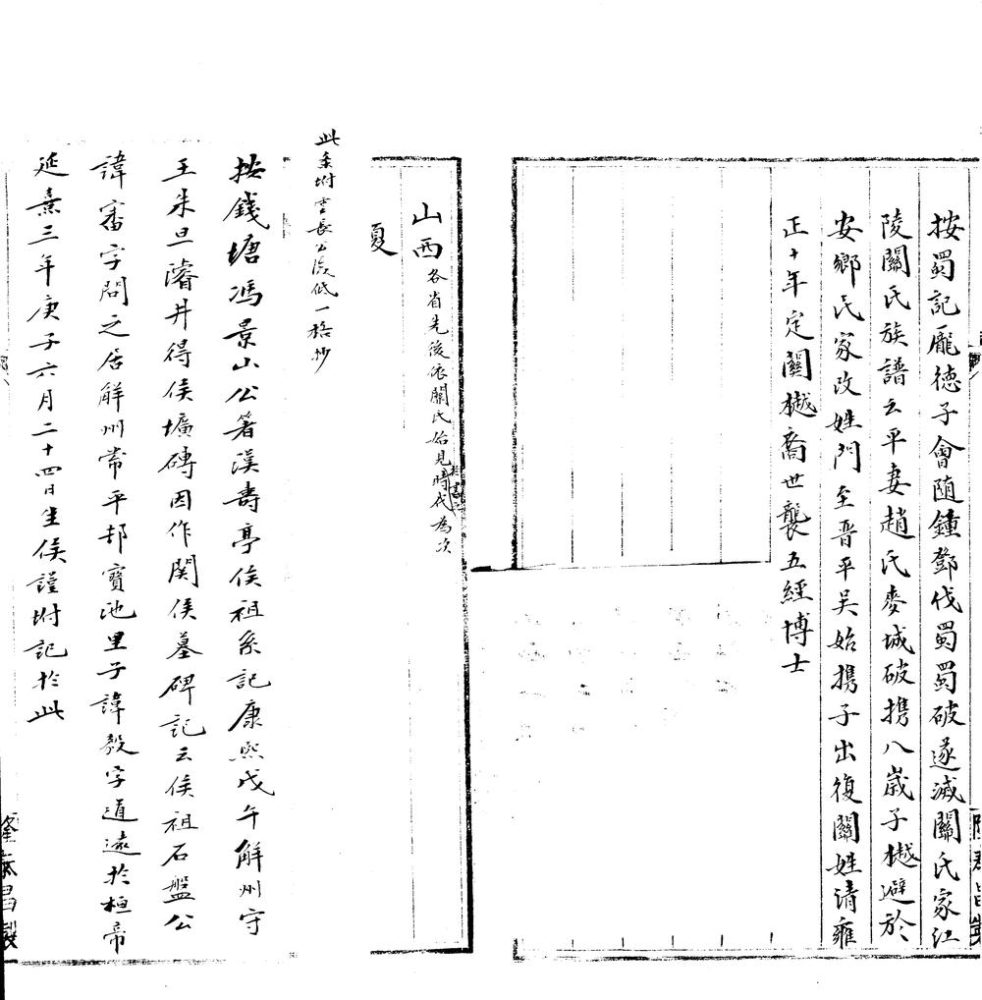 按蜀記龐德子會隨鍾鄧伐蜀蜀破遂滅關氏家江
陵關氏族譜云平妻趙氏麥城破携八歲子樾避於
安鄉氏家改姓門至晋平吴始携子出復關姓清雍
正十年定關樾裔世襲五經博士
山西各省先後依關氏始見時代為次
夏
此条坿書長公後低一格抄
按錢塘馮景山公著漢壽亭侯祖系記康熙戊午解州守
王朱旦濬井得侯壙磚因作関侯墓碑記云侯祖石盤公
諱審字問之居解州常平邨寶池里子諱毅字道遠於桓帝
延熹三年庚子六月二十四日生侯謹坿記於此
隆泰昌製